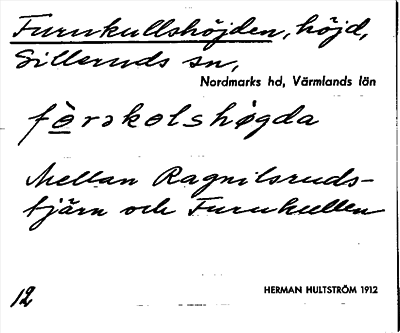 Furukullshöjden, höjd,
Silleruds sn,
Nordmarks hd, Värmlands län
fò̲rəkəlshøgda
Mellan Ragnilsruds-
tjärn och Furukullen
12
HERMAN HULTSTRÖM 1912